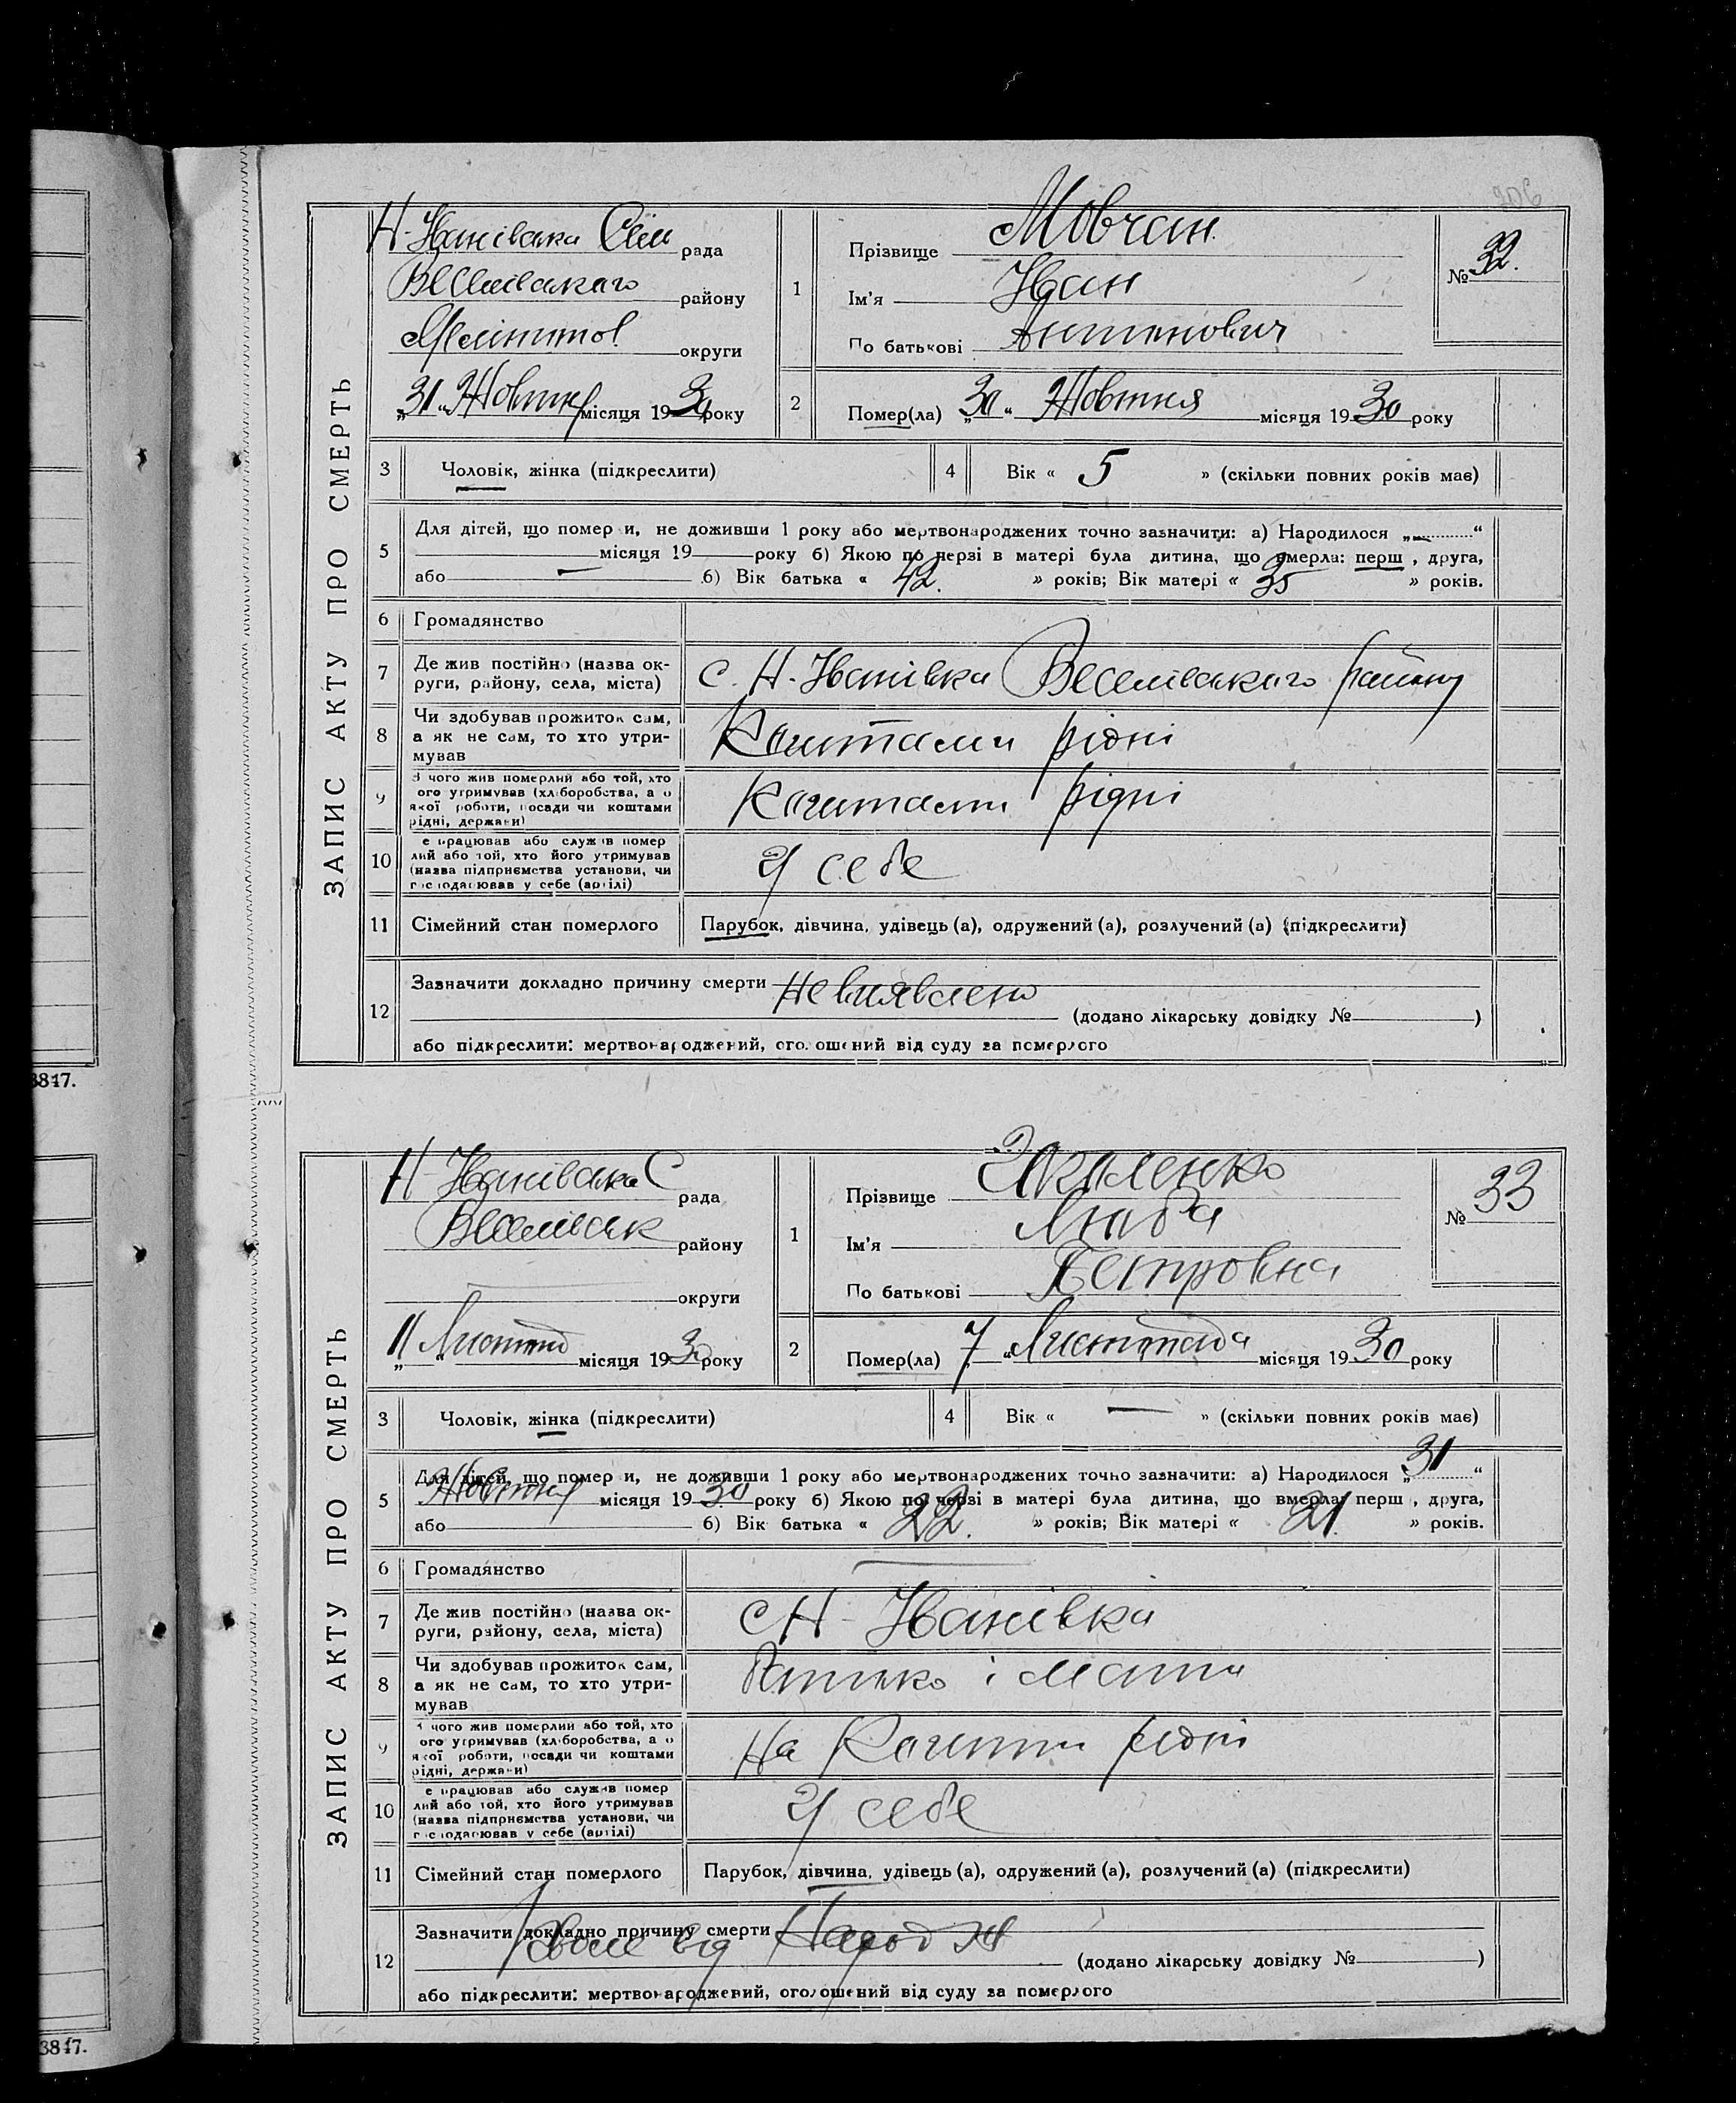 206
ЗАПИС АКТУ ПРО СМЕРТЬ
Н-Іванівська Сіль рада
Веселівського району
Мелітопол округи
„31“ Жовтня місяця 1930 року
1
Прізвище Мовчан
Ім'я Іван
По батькові Антонович
№ 32.
2
Помер(ла) „30“ Жовтня місяця 1930 року
3 Чоловік, жінка (підкреслити)
4 Вік « 5 » (скільки повних років має)
5 Для дітей, що помер и, не доживши 1 року або мертвонароджених точно зазначити: а) Народилося „—“
місяця 19 року б) Якою по черзі в матері була дитина, що вмерла: перш , друга,
або — б) Вік батька « 42. » років; Вік матері « 35 » років.
6 Громадянство
7 Де жив постійно (назва ок-
руги, району, села, міста)
с. Н-Іванівка Веселівського району
8 Чи здобував прожиток сам,
а як не сам, то хто утри-
мував
Коштами рідні
9 З чого жив померлий або той, хто
ого утримував (хліборобства, а о
якої роботи, посади чи коштами
рідні, держави)
Коштами рідні
10 е працював або служив помер
лий або той, хто його утримував
(назва підприємства установи, чи
господарював у себе (артілі)
У себе
11 Сімейний стан померлого Парубок, дівчина, удівець (а), одружений (а), розлучений (а) (підкреслити)
12 Зазначити докладно причину смерти Невиявлено
(додано лікарську довідку № )
або підкреслити: мертвонароджений, оголошений від суду за померлого
ЗАПИС АКТУ ПРО СМЕРТЬ
Н-Іванівська С рада
Веселівськ району
округи
„11“ Листопад місяця 1930 року
1
Прізвище
Ім'я Люба
По батькові Петровна
№ 33
2
Помер(ла) 7 “ Листопада місяця 1930 року
3 Чоловік, жінка (підкреслити)
4 Вік « — » (скільки повних років має)
5 Для дітей, що помер и, не доживши 1 року або мертвонароджених точно зазначити: а) Народилося „31“
Жовтня місяця 1930 року б) Якою по черзі в матері була дитина, що вмерла: перш , друга,
або б) Вік батька « 22. » років; Вік матері « 21. » років.
6 Громадянство —
7 Де жив постійно (назва ок-
руги, району, села, міста)
с Н-Іванівка
8 Чи здобував прожиток сам,
а як не сам, то хто утри-
мував
Батько і мати
9 З чого жив померлий або той, хто
ого утримував (хліборобства, а о
якої роботи, посади чи коштами
рідні, держави)
На Кошти рідні
10 е працював або служив помер
лий або той, хто його утримував
(назва підприємства установи, чи
господарював у себе (артілі)
У себе
11 Сімейний стан померлого Парубок, дівчина, удівець (а), одружений (а), розлучений (а) (підкреслити)
12 Зазначити докладно причину смерти
від Народж
(додано лікарську довідку № )
або підкреслити: мертвонароджений, оголошений від суду за померлого
3817.
3817.